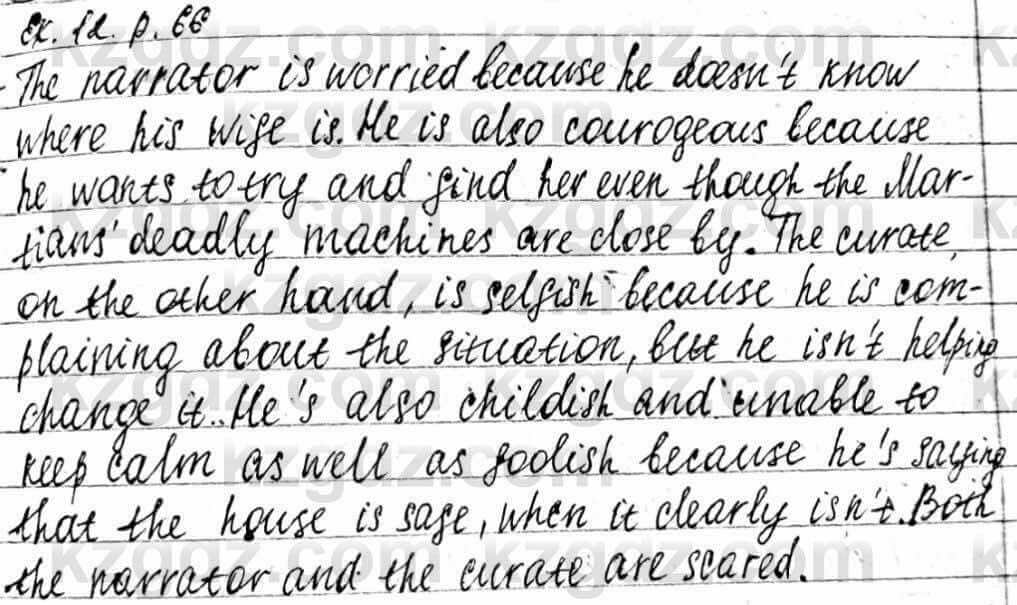 Ex. 12. p. 66
The narrator is worried because he doesn't know
where his wife is. He is also courogeous because
he wants to try and find her even though the Mar-
tians' deadly machines are close by. The curate,
on the other hand, is selfish because he is com-
plaining about the situation, but he isn't helping
change it. He's also childish and unable to
keep calm as well as foolish because he's saying
that the house is safe, when it clearly isn't. Both
the narrator and the curate are scared.